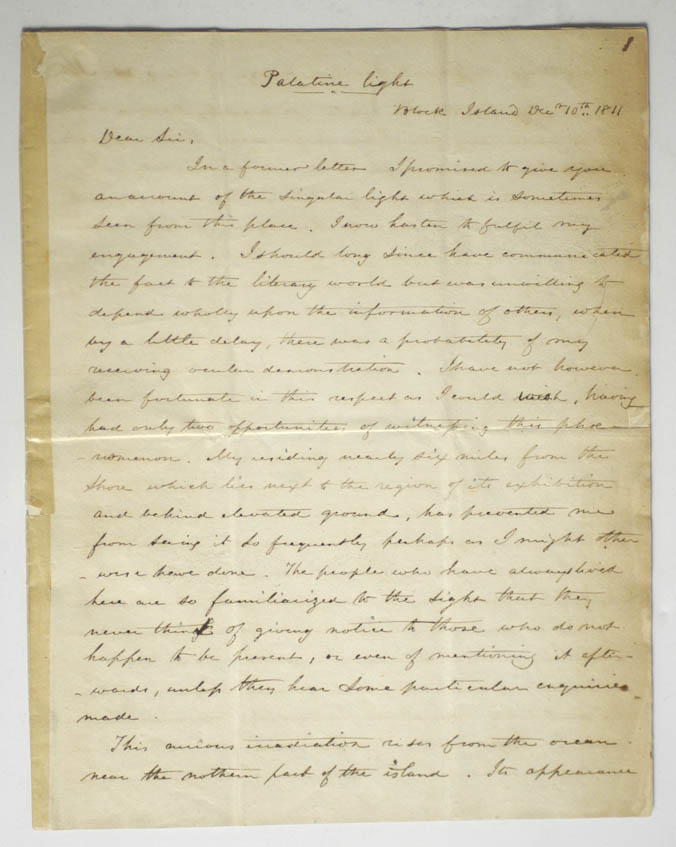 1
Palatine light
Block Island Decr 10th 1811
Dear Sir,
In a former letter I promised to give you
an account of the singular light which is sometimes
seen from this place. I now hasten to fulfil my
engagement. I should long since have communicated
the fact to the literary world but was unwilling to
depend wholly upon the information of others, when
by a little delay, there was a probability of my
receiving ocular demonstration. I have not however
been fortunate in this respect as I could wish, having
had only two opportunities of witnessing this phoe-
-nomenon. My residing nearly six miles from the
shore which lies next to the region of its exhibition
and behind elevated ground, has prevented me
from seing it so frequently perhaps as I might other
-wise have done. The people who have always lived
here are so familiarized to the sight that they
never think of giving notice to those who do not
happen to be present, or even of mentioning it after-
-wards, unless they hear some particular enquiries
made.
This curious irradiation rises from the ocean
near the nothern part of the island. Its appearance